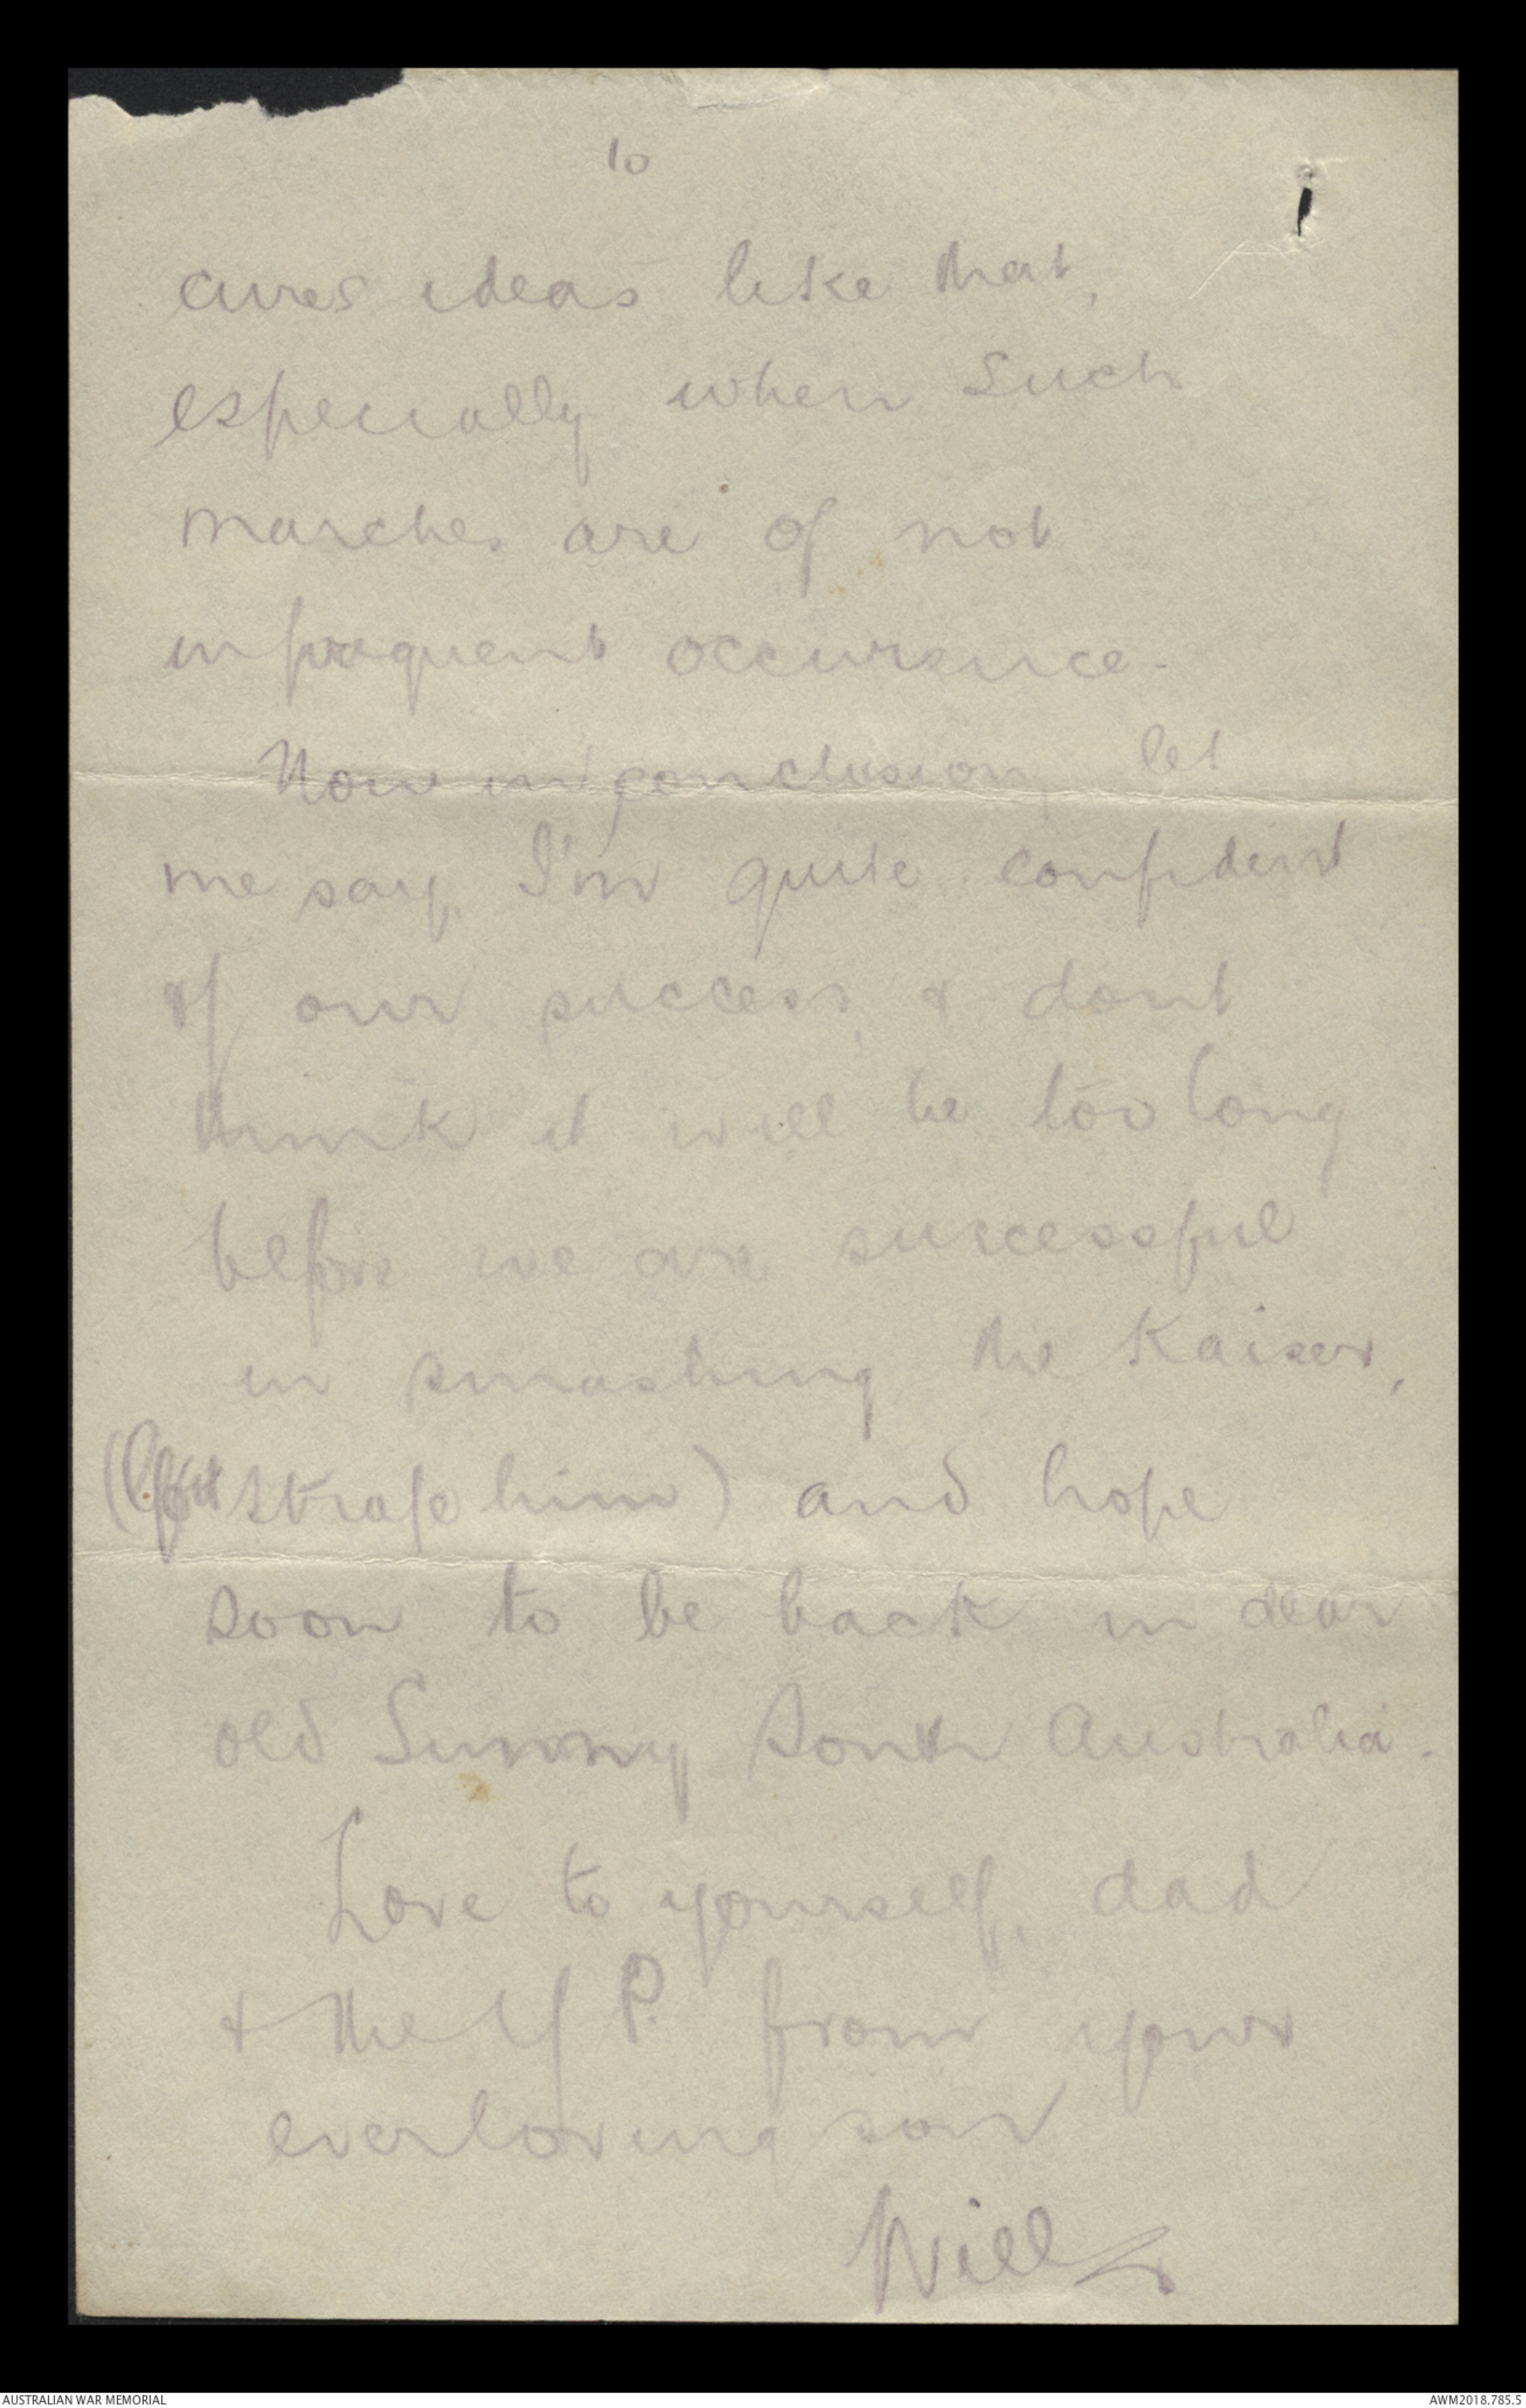 10
cures ideas like that,
especially when such
marches are of not
infrequent occurence.
Now in conclusion, let
me say, I'm quite confident
of our success, & dont
think it will be too long
before we are successful
in smashing the Kaiser,
(Gott strafe him) and hope
soon to be back in dear
old Sunny South Australia.
Love to yourself, dad
& the Y P. from your
everloving son
Will
AUSTRALIAN WAR MEMORIAL
AWM2018.785.5